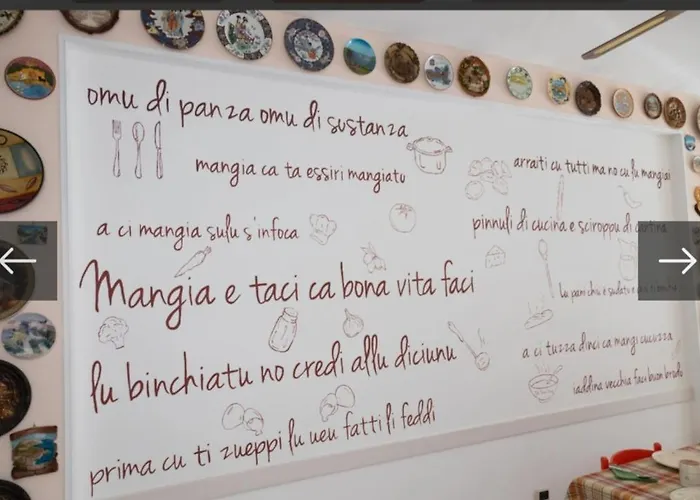 omu di panza omu di sustanza
mangia ca ta essiri mangiatu
a ci mangia sulu s'infoca
Mangia e taci ca bona vita faci
lu binchiatu no credi allu diciunu
prima cu ti zueppi lu ueu fatti li feddi
arraiti cu tutti ma no cu lu mangiari
pinnuli di cucina e sciroppu di cantina
lu pani chiu è sudatu e
a ci tuzza dinci ca mangi cucuzza
iaddina vecchia faci buon brodu